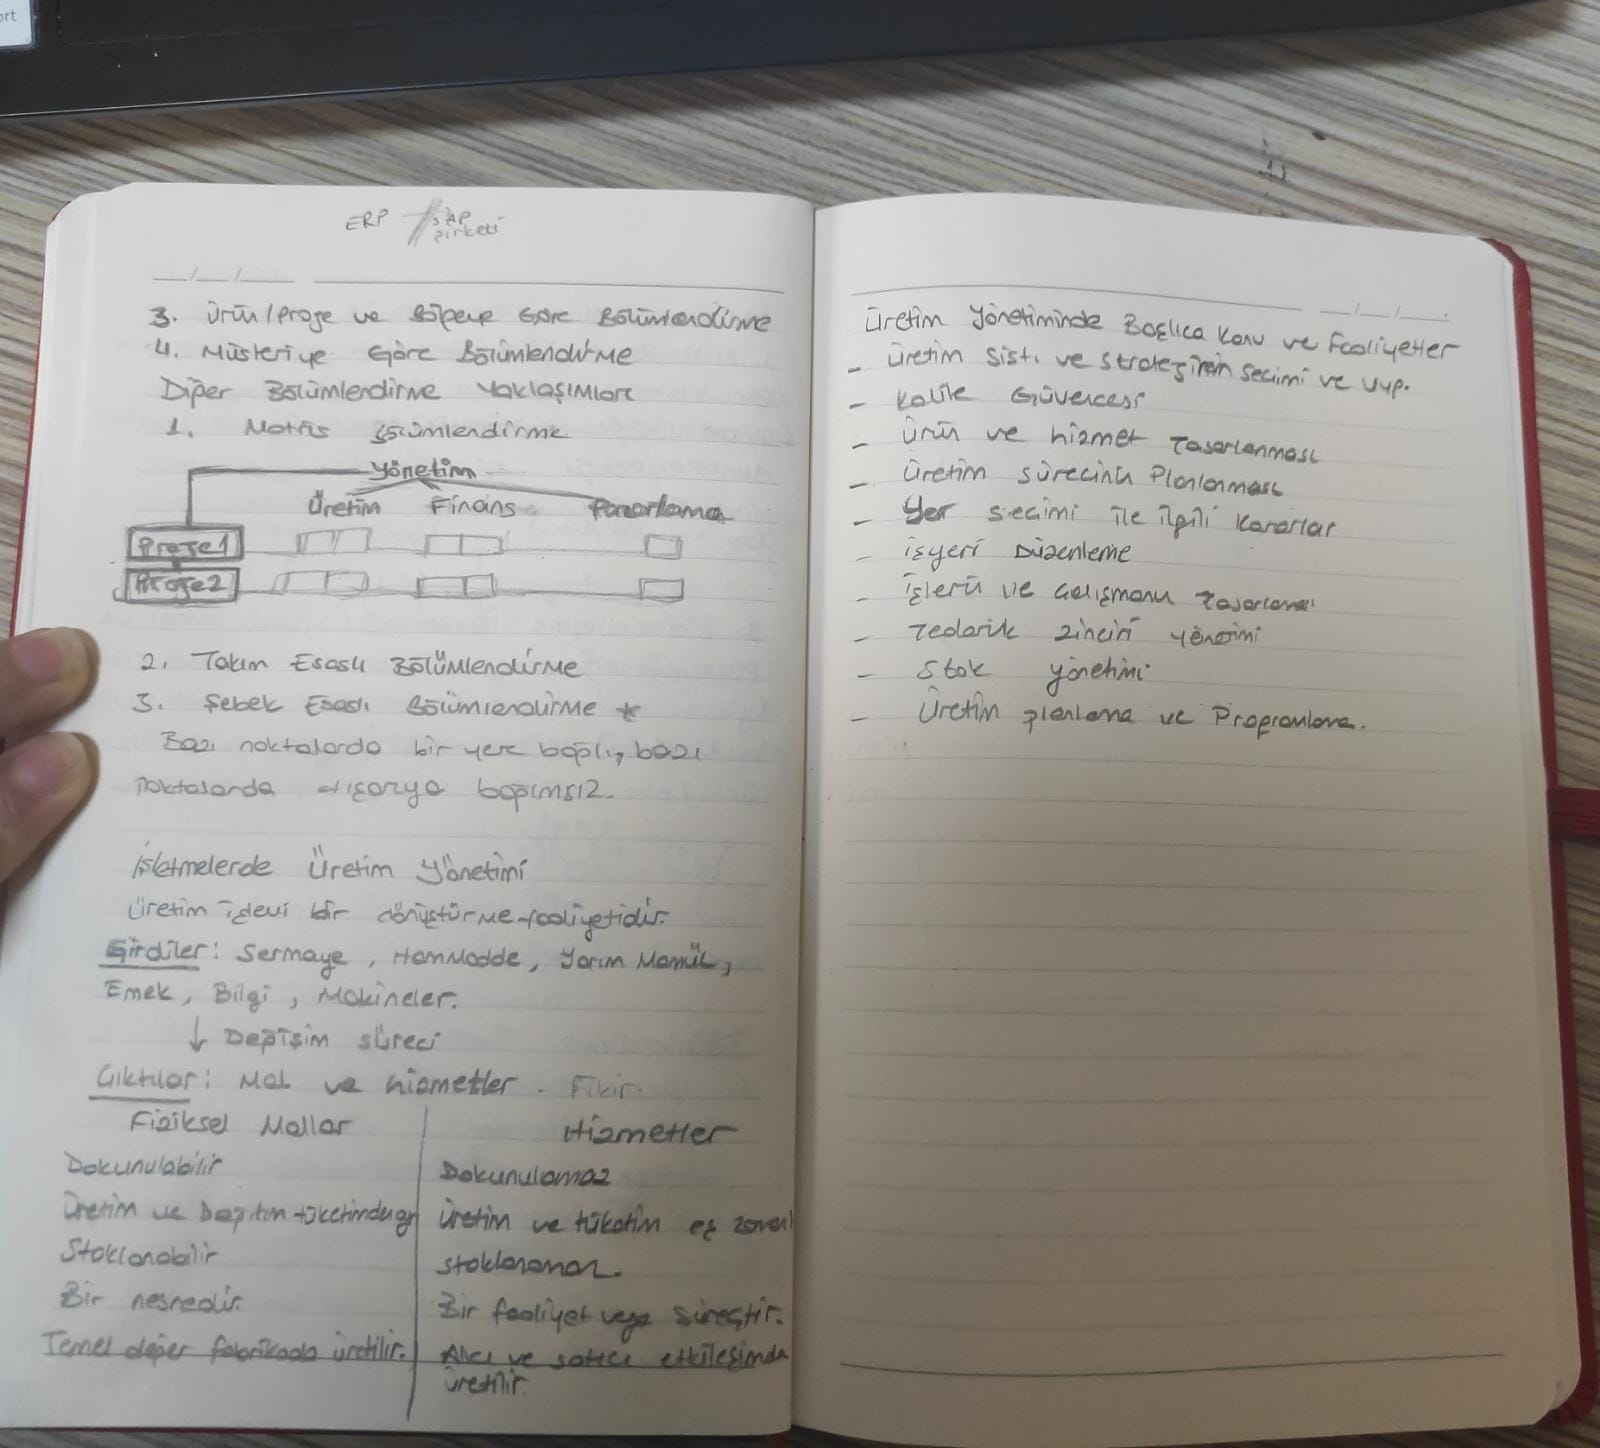 ort
ERP // SAP
şirketi
3. Ürün/Proje ve Bölgeye Göre Bölümlendirme
4. Müşteriye Göre Bölümlendirme
Diğer Bölümlendirme Yaklaşımları
1. Matris Bölümlendirme
Yönetim
Üretim Finans Pazarlama
Proje1
Proje2
2. Takım Esaslı Bölümlendirme
3. Şebek Esaslı Bölümlendirme *
Bazı noktalarda bir yere bağlı, bazı
noktalarda dışarıya bağımsız.
İşletmelerde Üretim Yönetimi
Üretim işlevi bir dönüştürme faaliyetidir.
Girdiler: Sermaye, Hammadde, Yarım Mamül,
Emek, Bilgi, Makineler.
↓ Değişim süreci
Çıktılar: Mal ve hizmetler. Fikir.
Fiziksel Mallar | Hizmetler
Dokunulabilir | Dokunulamaz
Üretim ve Dağıtım tüketimden ay | Üretim ve tüketim eş zamanl
Stoklanabilir | Stoklanamaz.
Bir nesnedir. | Bir faaliyet veya süreçtir.
Temel değer fabrikada üretilir. | Alıcı ve satıcı etkileşimda
üretilir.
Üretim Yönetiminde Başlıca Konu ve Faaliyetler
- Üretim Sist. ve Stratejinin Seçimi ve Uyg.
- Kalite Güvencesi
- Ürün ve hizmet Tasarlanması
- Üretim sürecinin Planlanması
- Yer seçimi ile ilgili kararlar
- İşyeri Düzenleme
- İşlerin ve Çalışmanın Tasarlanması
- Tedarik zinciri yönetimi
- Stok yönetimi
- Üretim planlama ve Programlama.